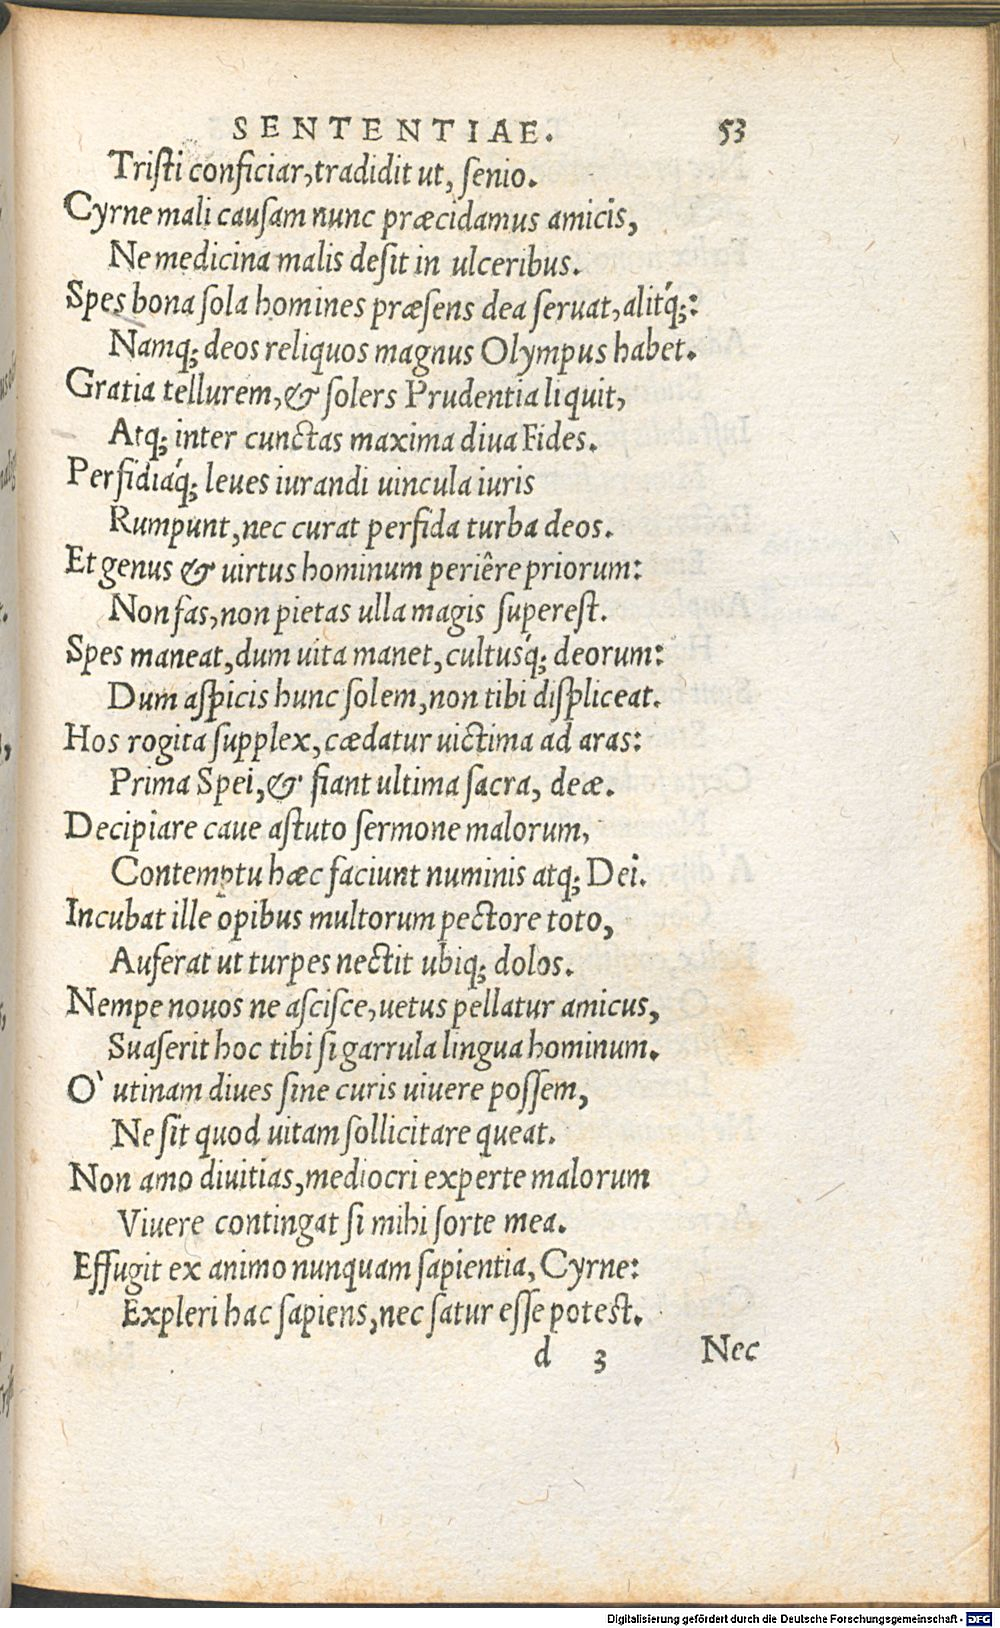 SENTENTIAE. 53
Triſti conficiar, tradidit ut, ſenio.
Cyrne mali cauſam nunc præcidamus amicis,
Ne medicina malis deſit in ulceribus.
Spes bona ſola homines præſens dea ſeruat, alitq́;:
Namq; deos reliquos magnus Olympus habet.
Gratia tellurem, & ſolers Prudentia liquit,
Atq; inter cunctas maxima diua Fides.
Perfidiaq́; leues iurandi uincula iuris
Rumpunt, nec curat perfida turba deos.
Et genus & uirtus hominum periêre priorum:
Non fas, non pietas ulla magis ſupereſt.
Spes maneat, dum uita manet, cultusq́; deorum:
Dum aſpicis hunc ſolem, non tibi diſpliceat.
Hos rogita ſupplex, cædatur uictima ad aras:
Prima Spei, & fiant ultima ſacra, deæ.
Decipiare caue aſtuto ſermone malorum,
Contemptu hæc faciunt numinis atq; Dei.
Incubat ille opibus multorum pectore toto,
Auferat ut turpes nectit ubiq; dolos.
Nempe nouos ne aſciſce, uetus pellatur amicus,
Suaſerit hoc tibi ſi garrula lingua hominum.
O` utinam diues ſine curis uiuere poſſem,
Ne ſit quod uitam ſollicitare queat.
Non amo diuitias, mediocri experte malorum
Viuere contingat ſi mihi ſorte mea.
Effugit ex animo nunquam ſapientia, Cyrne:
Expleri hac ſapiens, nec ſatur eſſe poteſt.
d 3 Nec
Digitalisierung gefördert durch die Deutsche Forschungsgemeinschaft - DFG